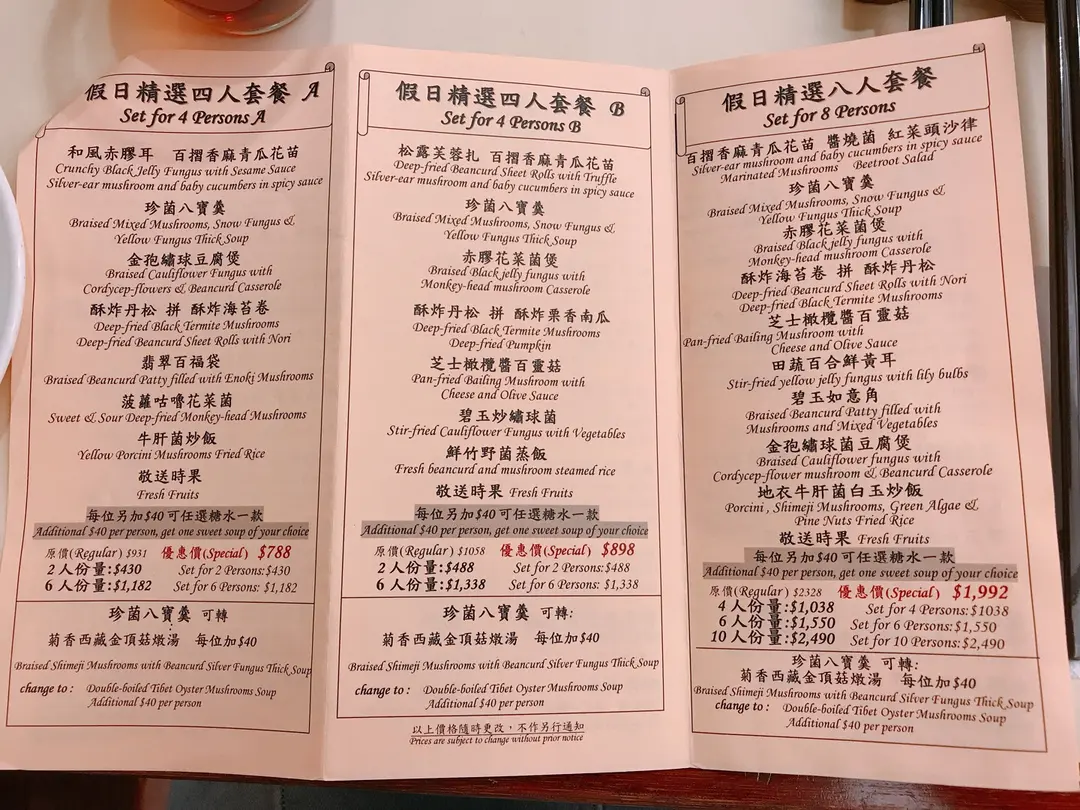 假日精選四人套餐 A
Set for 4 Persons A
和風赤膠耳 百摺香麻青瓜花苗
Crunchy Black Jelly Fungus with Sesame Sauce
Silver-ear mushroom and baby cucumbers in spicy sauce
珍菌八寶羹
Braised Mixed Mushrooms, Snow Fungus &
Yellow Fungus Thick Soup
金孢繡球豆腐煲
Braised Cauliflower Fungus with
Cordycep-flowers & Beancurd Casserole
酥炸丹松 拼 酥炸海苔卷
Deep-fried Black Termite Mushrooms
Deep-fried Beancurd Sheet Rolls with Nori
翡翠百福袋
Braised Beancurd Patty filled with Enoki Mushrooms
菠蘿咕嚕花菜菌
Sweet & Sour Deep-fried Monkey-head Mushrooms
牛肝菌炒飯
Yellow Porcini Mushrooms Fried Rice
敬送時果
Fresh Fruits
每位另加$40可任選糖水一款
Additional $40 per person, get one sweet soup of your choice
原價(Regular) $931 優惠價(Special) $788
2人份量:$430 Set for 2 Persons:$430
6人份量:$1,182 Set for 6 Persons: $1,182
珍菌八寶羹 可轉:
菊香西藏金頂菇燉湯 每位加$40
Braised Shimeji Mushrooms with Beancurd Silver Fungus Thick Soup
change to : Double-boiled Tibet Oyster Mushrooms Soup
Additional $40 per person
假日精選四人套餐 B
Set for 4 Persons B
松露芙蓉扎 百摺香麻青瓜花苗
Deep-fried Beancurd Sheet Rolls with Truffle
Silver-ear mushroom and baby cucumbers in spicy sauce
珍菌八寶羹
Braised Mixed Mushrooms, Snow Fungus &
Yellow Fungus Thick Soup
赤膠花菜菌煲
Braised Black jelly fungus with
Monkey-head mushroom Casserole
酥炸丹松 拼 酥炸栗香南瓜
Deep-fried Black Termite Mushrooms
Deep-fried Pumpkin
芝士橄欖醬百靈菇
Pan-fried Bailing Mushroom with
Cheese and Olive Sauce
碧玉炒繡球菌
Stir-fried Cauliflower Fungus with Vegetables
鮮竹野菌蒸飯
Fresh beancurd and mushroom steamed rice
敬送時果 Fresh Fruits
每位另加$40可任選糖水一款
Additional $40 per person, get one sweet soup of your choice
原價(Regular) $1058 優惠價(Special) $898
2人份量:$488 Set for 2 Persons:$488
6人份量:$1,338 Set for 6 Persons: $1,338
珍菌八寶羹 可轉:
菊香西藏金頂菇燉湯 每位加$40
Braised Shimeji Mushrooms with Beancurd Silver Fungus Thick Soup
change to : Double-boiled Tibet Oyster Mushrooms Soup
Additional $40 per person
以上價格隨時更改，不作另行通知
Prices are subject to change without prior notice
假日精選八人套餐
Set for 8 Persons
百摺香麻青瓜花苗 醬燒菌 紅菜頭沙律
Silver-ear mushroom and baby cucumbers in spicy sauce
Marinated Mushrooms Beetroot Salad
珍菌八寶羹
Braised Mixed Mushrooms, Snow Fungus &
Yellow Fungus Thick Soup
赤膠花菜菌煲
Braised Black jelly fungus with
Monkey-head mushroom Casserole
酥炸海苔卷 拼 酥炸丹松
Deep-fried Beancurd Sheet Rolls with Nori
Deep-fried Black Termite Mushrooms
芝士橄欖醬百靈菇
Pan-fried Bailing Mushroom with
Cheese and Olive Sauce
田蔬百合鮮黃耳
Stir-fried yellow jelly fungus with lily bulbs
碧玉如意角
Braised Beancurd Patty filled with
Mushrooms and Mixed Vegetables
金孢繡球菌豆腐煲
Braised Cauliflower fungus with
Cordycep-flower mushroom & Beancurd Casserole
地衣牛肝菌白玉炒飯
Porcini , Shimeji Mushrooms, Green Algae &
Pine Nuts Fried Rice
敬送時果 Fresh Fruits
每位另加$40可任選糖水一款
Additional $40 per person, get one sweet soup of your choice
原價(Regular) $2328 優惠價(Special) $1,992
4人份量:$1,038 Set for 4 Persons: $1038
6人份量:$1,550 Set for 6 Persons:$1,550
10人份量:$2,490 Set for 10 Persons:$2,490
珍菌八寶羹 可轉:
菊香西藏金頂菇燉湯 每位加$40
Braised Shimeji Mushrooms with Beancurd Silver Fungus Thick Soup
change to : Double-boiled Tibet Oyster Mushrooms Soup
Additional $40 per person